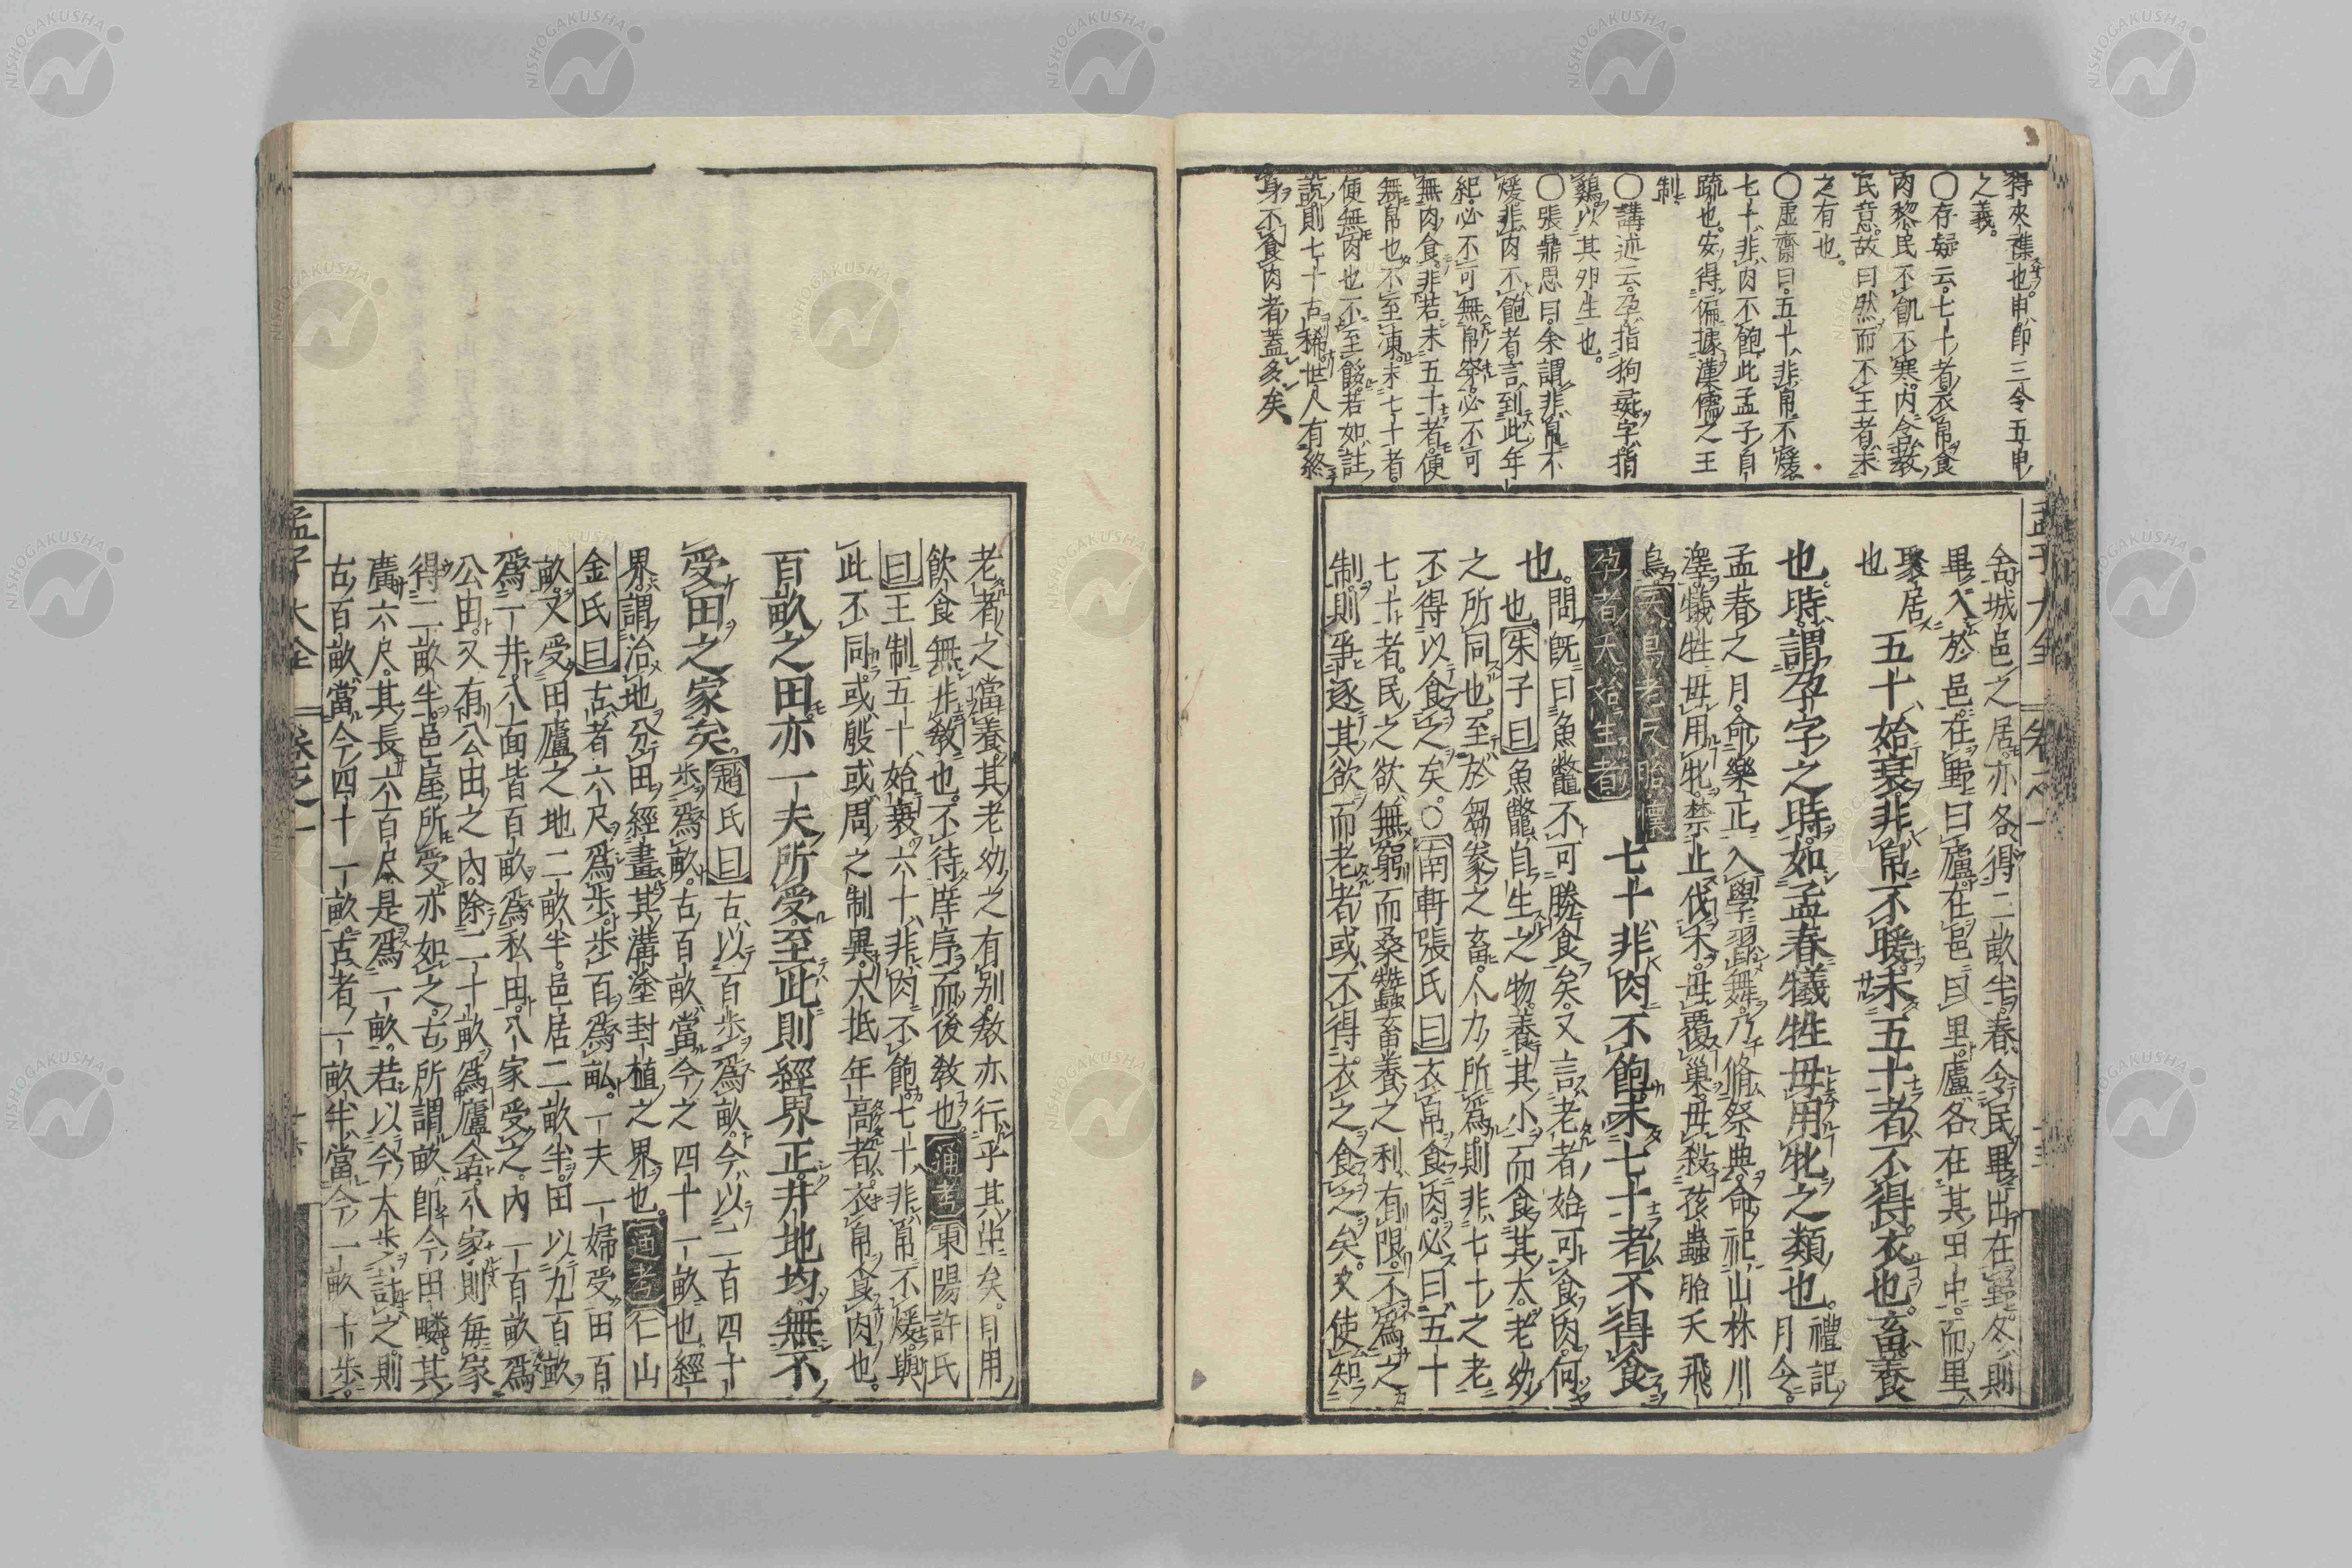 得夾襍也申即三令五申
之義。
〇存疑云。七十者衣帛食
肉黎民不飢不寒。内含教
民意。故曰然而不王者未
之有也。
〇虚齋曰。五十非帛不煖
七十非肉不飽此孟子自
疏也。安得偏據漢儒之王
制
〇講述云。孕指狗彘。字指
鷄以其卵生也。
〇張鼎思曰。余謂非帛不
煖非肉不飽者言到此年
紀。必不可無帛。必不可
無肉食。非若未五十者。便
無帛也。不至凍。未七十者。
便無肉也。不至餒。若如註
說則七十古稀。世人有終
身不食肉者蓋多矣。
孟子大全 卷之一
舍。城邑之居。亦各得二畝半。春令民畢出在野。冬則
畢入於邑。在野曰廬。在邑曰里。廬各在其田中。而里
聚居
也
五十始衰。非帛不暖。未五十者不得衣也。畜養
也。時。謂孕字之時。如孟春犧牲毋用牝之類也。
禮記
月令。
孟春之月。命樂正入學習舞。乃脩祭典。命祀山林川
澤。犧牲毋用牝。禁止伐木。毋覆巢。毋殺孩蟲胎夭飛
鳥
七十非肉不飽。未七十者不得食
也。
問既曰魚鼈不可勝食矣。又言老者始可食肉。何
也。朱子曰魚鼈自生之物。養其小而食其大。老幼
之所同也。至於芻豢之畜。人力所爲。則非七十之老
不得以食之矣。〇南軒張氏曰衣帛食肉。必曰五十
七十者。民之欲無窮。而桑蠶畜養之利有限。不爲之
制。則爭逐其欲。而老者或不得衣之食之矣。又使知
老者之當養。其老幼之有別。教亦行乎其中矣。日用
飲食無非教也。不待庠序而後教也。通考東陽許氏
曰王制五十始衰。六十非肉不飽。七十非帛不煖。與
此不同。或殷或周之制異。大抵年高者衣帛食肉也。
百畝之田。亦一夫所受。至此則經界正。井地均。無不
受田之家矣。
趙氏曰古以百步爲畝。今以二百四十
步爲畝。古百畝當今之四十一畝也。經
界。謂治地分田。經畫其溝塗封植之界也。通考仁山
金氏曰古者六尺爲步。步百爲畝。一夫一婦受田百
畝。又受田廬之地二畝半。邑居二畝半。田以九百畝
爲一井。八面皆百畝爲私田。八家受之。内一百畝爲
公田。又有公田之内。除二十畝爲廬舍。八家則每家
得二畝半。邑屋所受亦如之。古所謂畝。即今田疄。其
廣六尺。其長六百尺。是爲一畝。若以今大步計之。則
古百畝當今四十一畝。古者一畝半。當今一畝十步。
孟子大全 卷之一